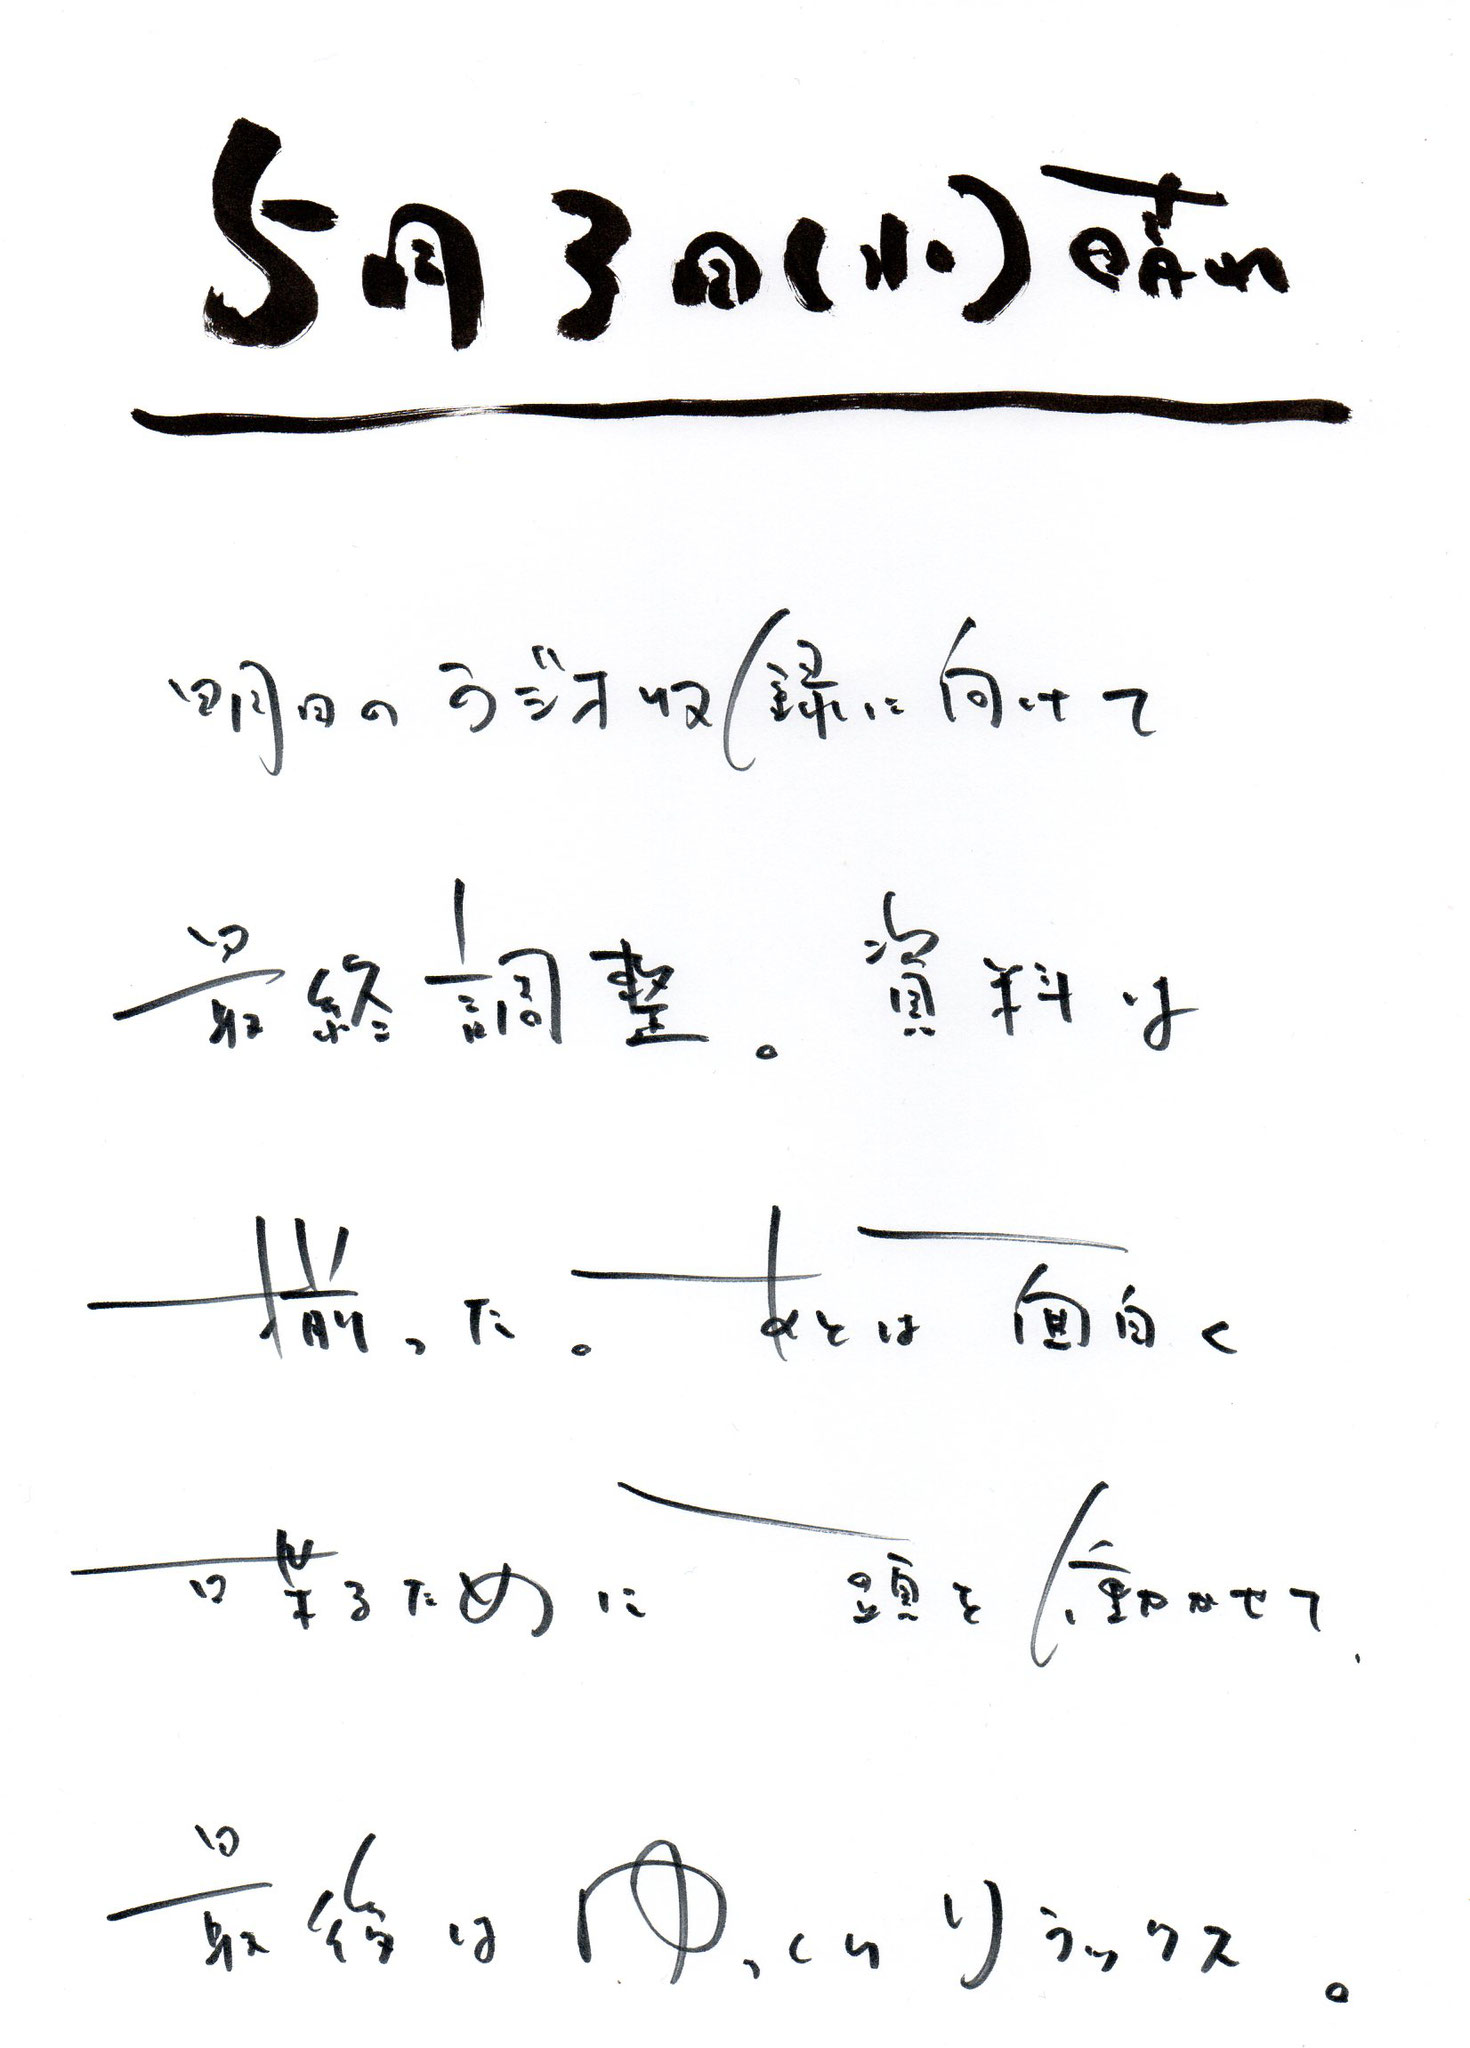 5月3日(水)晴れ
明日のラジオ収録に向けて
最終調整。資料は
揃った。あとは面白く
喋るために頭を働かせて、
最後はゆっくりリラックス。